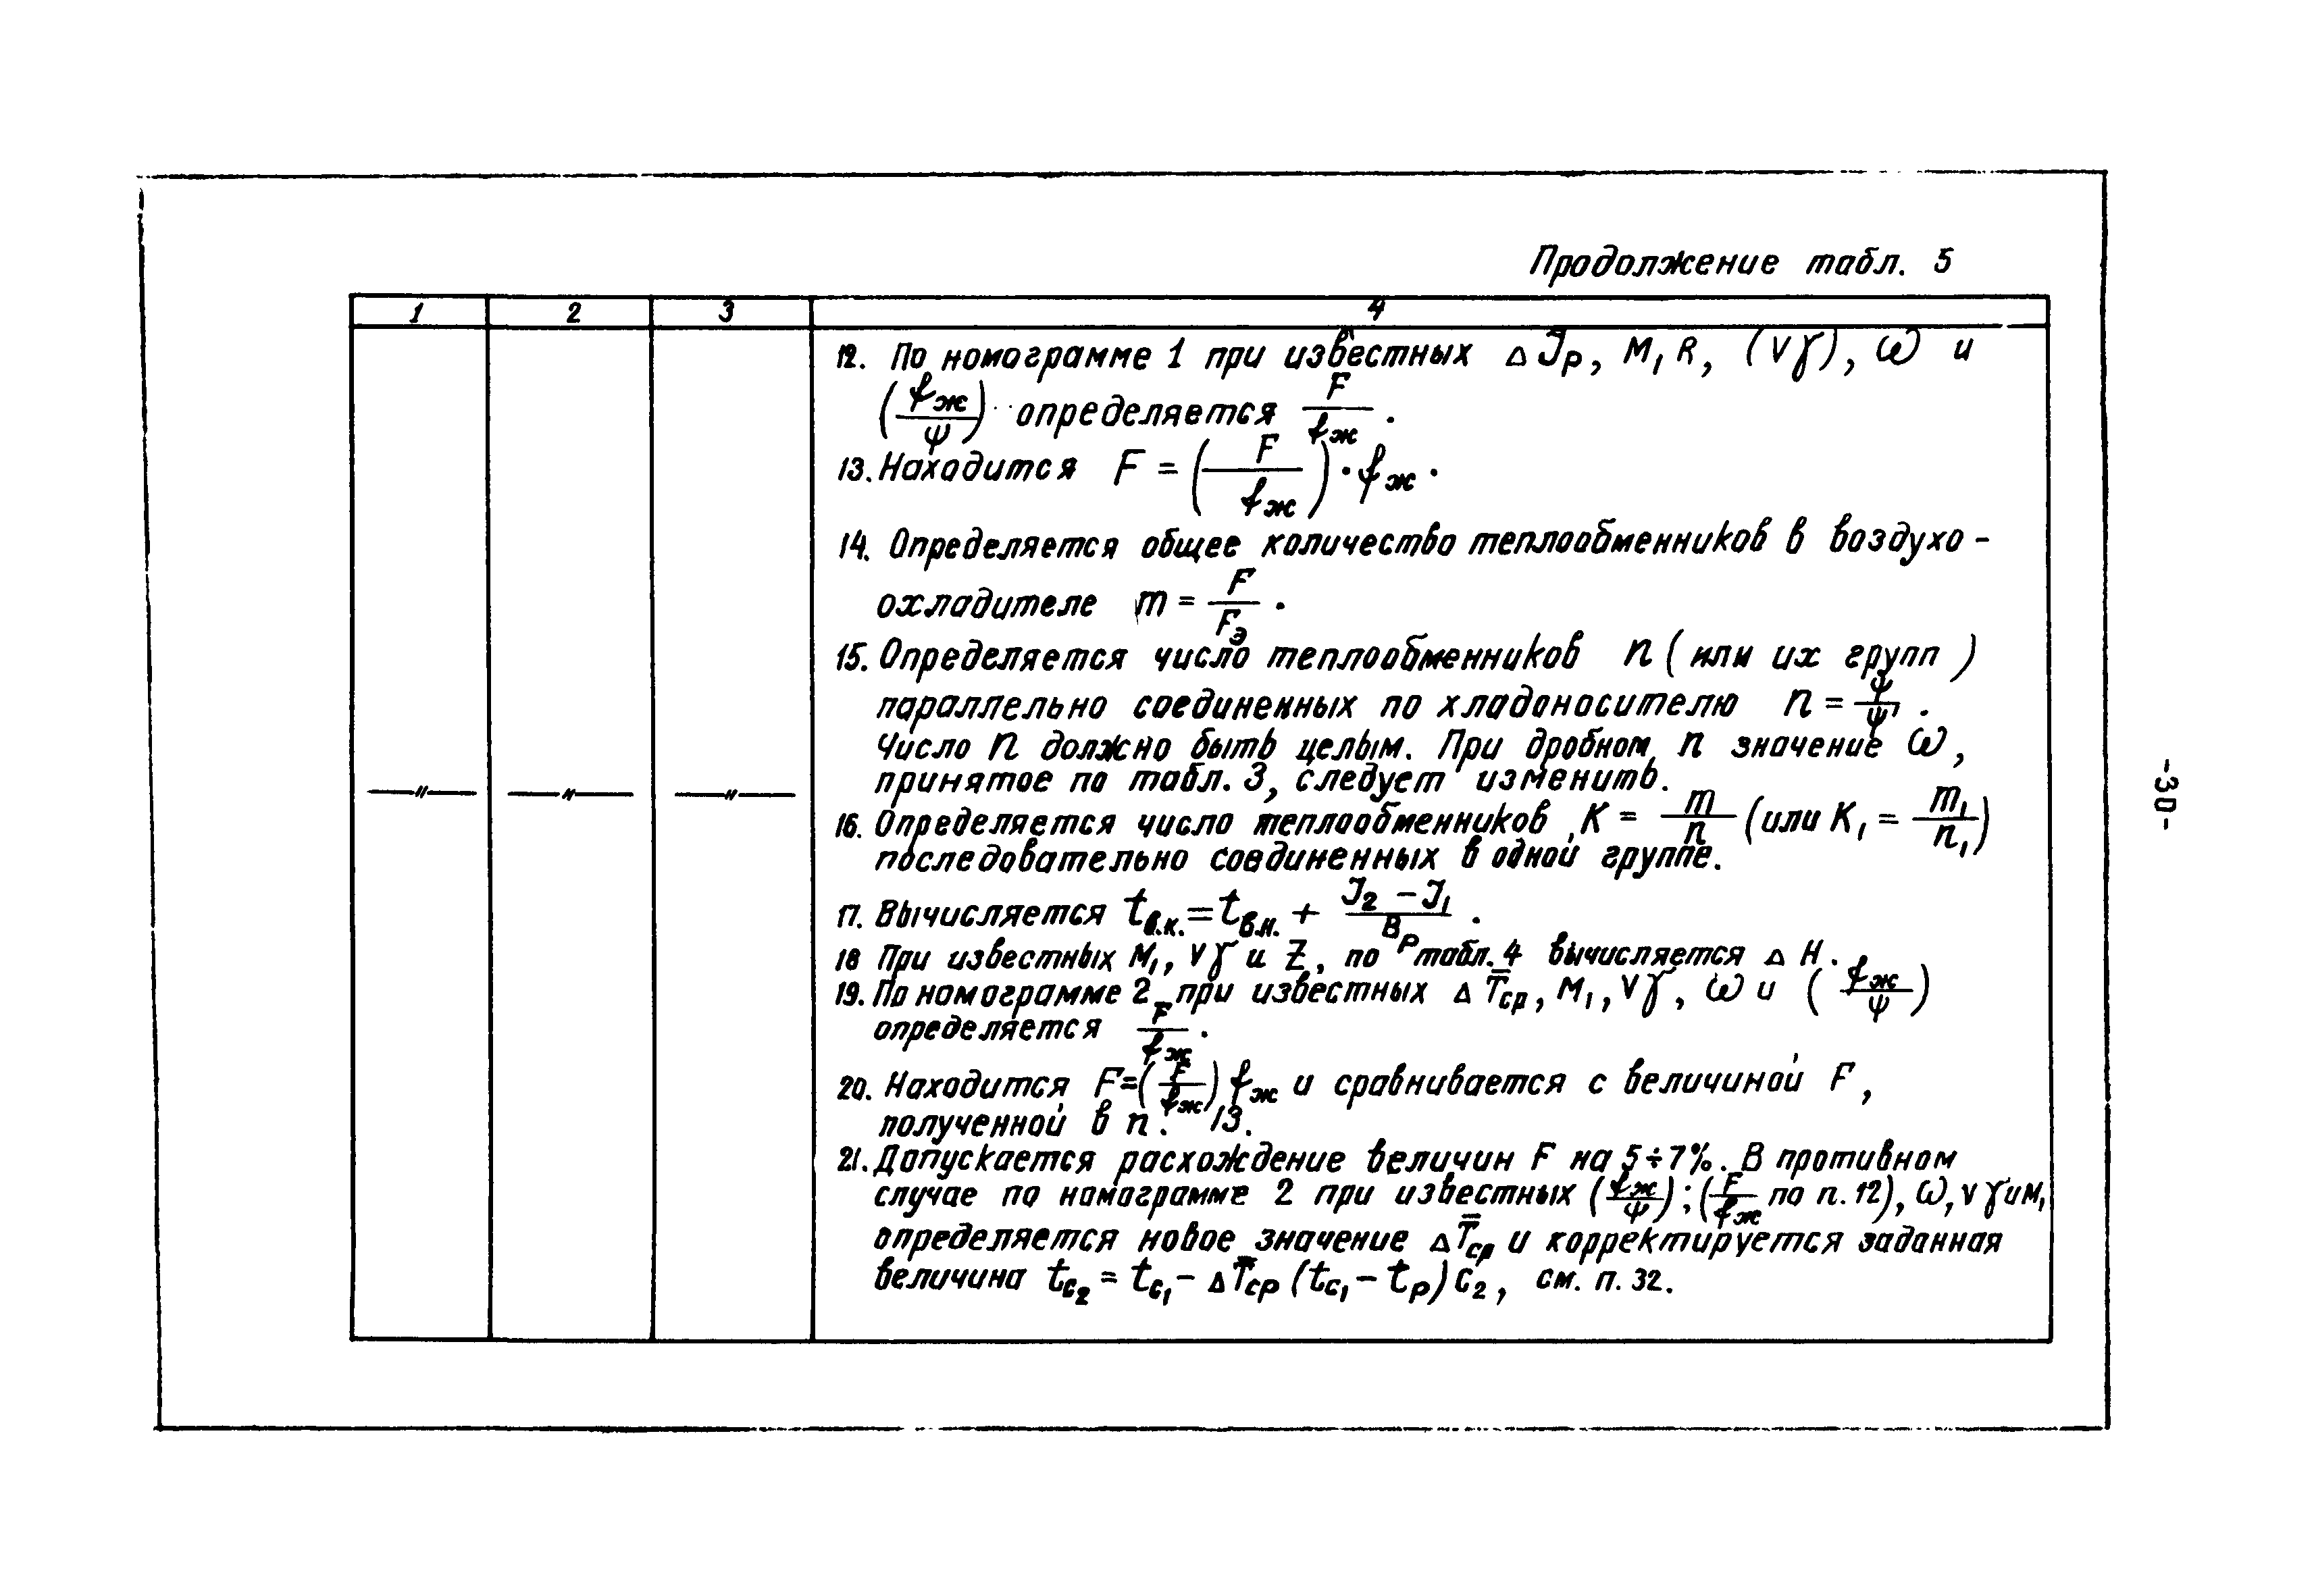 Продолжение табл. 5
1 2 3 4
12. По номограмме 1 при известных ΔJр, M₁ R, (vγ), ω и
(fж/ψ) определяется F/fж.
13. Находится F = (F/fж)·fж.
14. Определяется общее количество теплообменников в воздухо-
охладителе m = F/Fэ.
15. Определяется число теплообменников n (или их групп)
параллельно соединенных по хладоносителю n = ψ/ψ'.
Число n должно быть целым. При дробном n значение ω,
принятое по табл. 3, следует изменить.
—〃— —〃— —〃—
16. Определяется число теплообменников K = m/n (или K₁ = m₁/n₁)
последовательно соединенных в одной группе.
17. Вычисляется tв.к. = tв.н. + (J₂ - J₁)/Bр.
18 При известных M₁, vγ и Z, по табл. 4 вычисляется ΔH.
19. По номограмме 2 при известных ΔT̿ср, M₁, vγ, ω и (fж/ψ)
определяется F/fж.
20. Находится F=(F/fж) fж и сравнивается с величиной F,
полученной в п. 13.
21. Допускается расхождение величин F на 5÷7%. В противном
случае по номограмме 2 при известных (fж/ψ); (F/fж по п. 12), ω, vγ и M₁
определяется новое значение ΔT̿ср и корректируется заданная
величина tс₂ = tс₁ - ΔT̿ср (tс₁ - tр) C₂, см. п. 32.
-30-